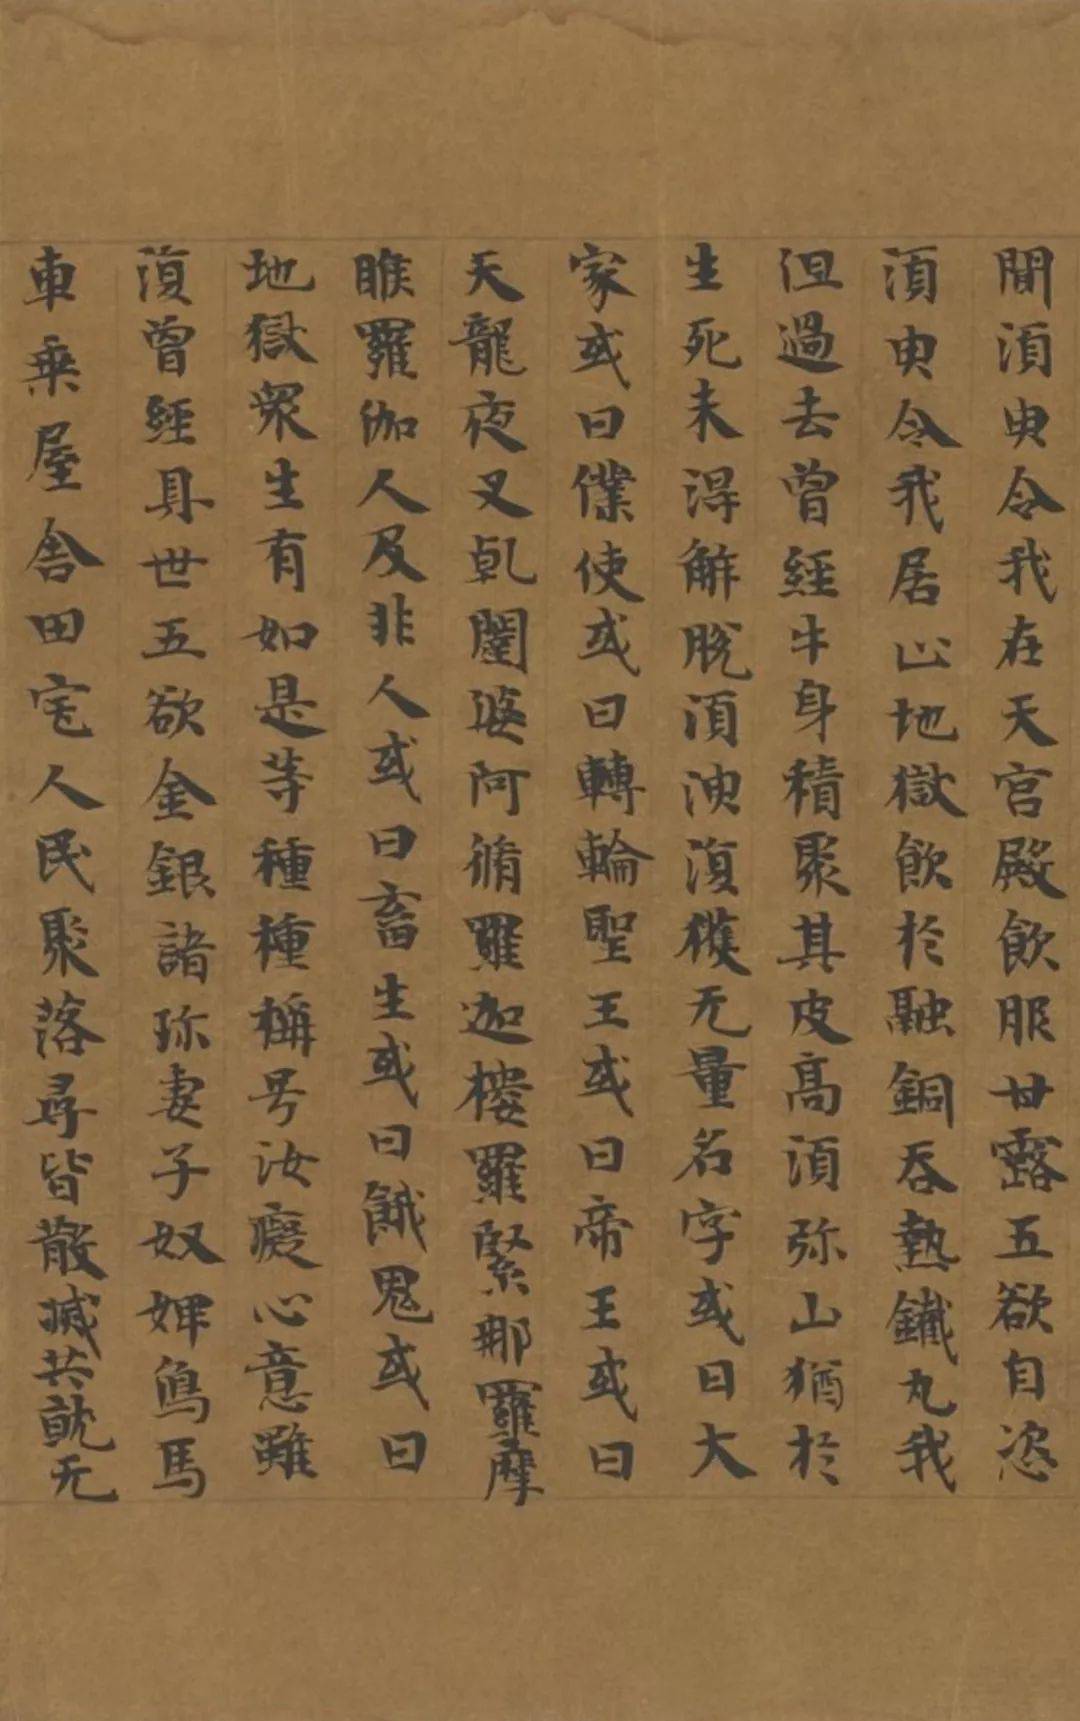 間湏臾令我在天宮殿飲服甘露五欲自恣
湏臾令我居止地獄飲於融銅吞熱鐵丸我
但過去曾經牛身積聚其皮高湏弥山猶於
生死未得解脫湏臾復獲无量名字或曰大
家或曰僕使或曰轉輪聖王或曰帝王或曰
天龍夜叉乹闥婆阿脩羅迦樓羅緊那羅摩
睺羅伽人及非人或曰畜生或曰餓鬼或曰
地獄衆生有如是等種種稱号汝癡心意雖
復曾經具世五欲金銀諸珎妻子奴婢象馬
車乘屋舍田宅人民聚落尋皆散滅共就无